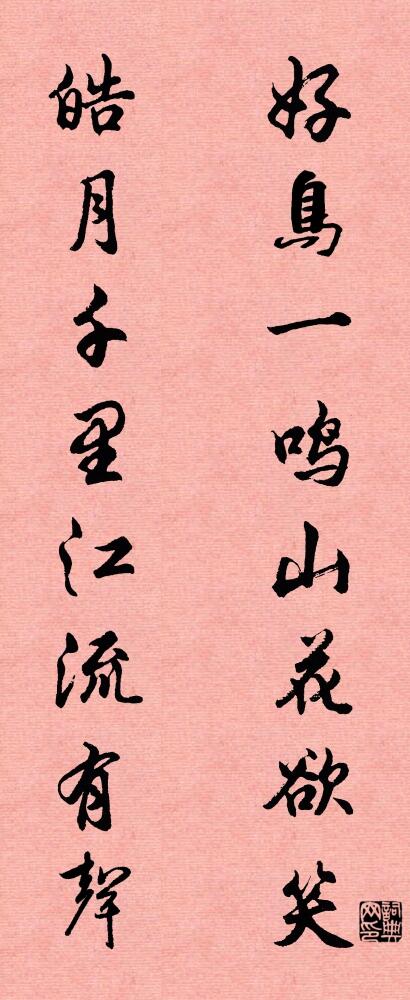 好鳥一鳴山花欲笑
皓月千里江流有聲